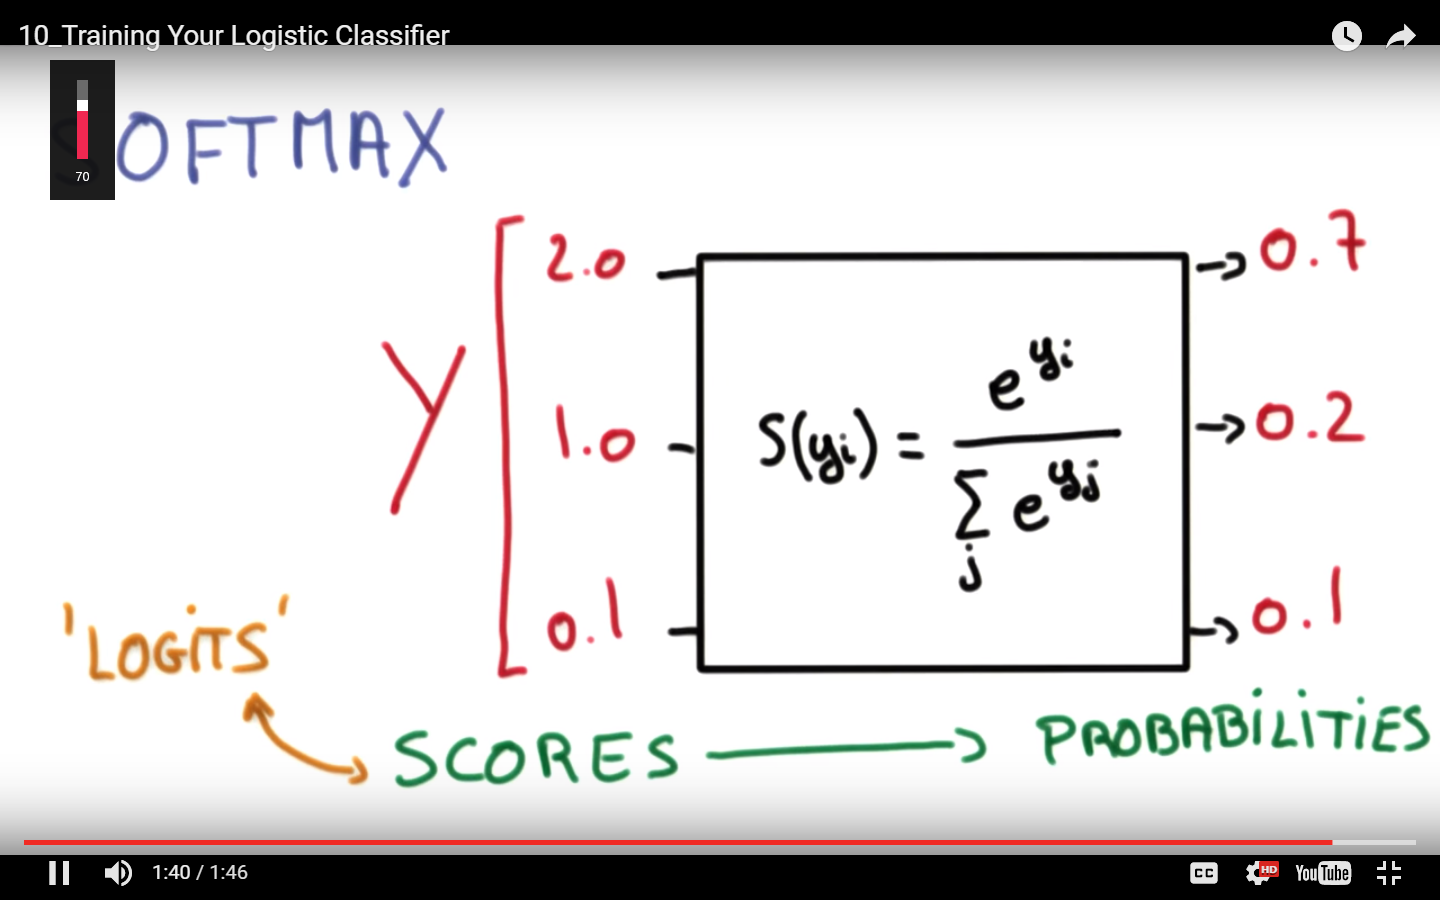 10_Training Your Logistic Classifier
SOFTMAX
70
Y
2.0
1.0
0.1
S(yi) = e^yi / Σj e^yj
0.7
0.2
0.1
'LOGITS'
SCORES → PROBABILITIES
1:40 / 1:46
CC
HD
YouTube